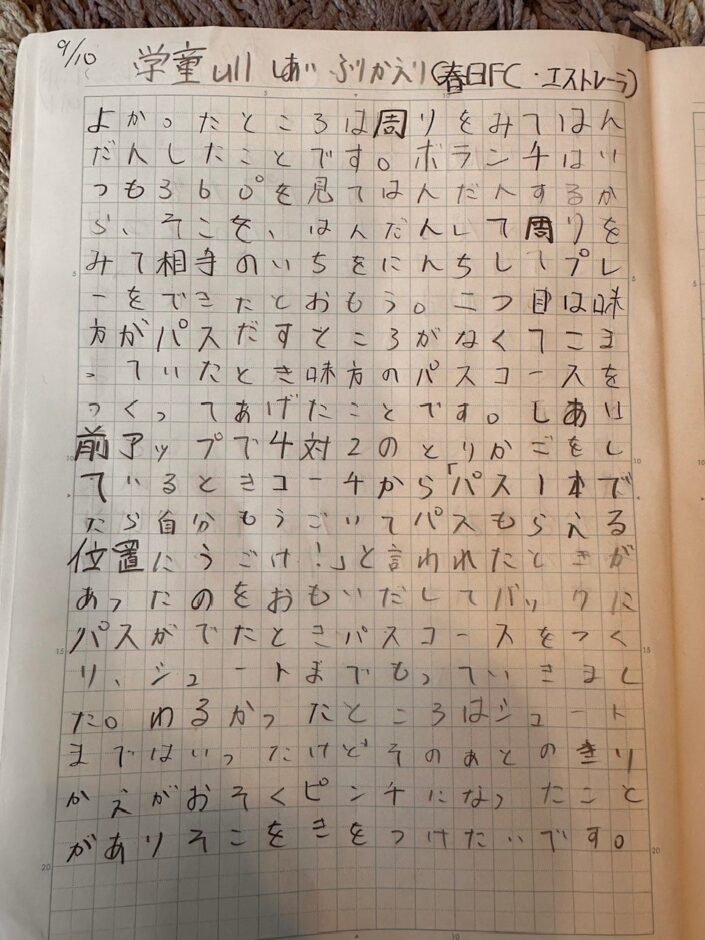 9/10
学童 U11 しあい ふりかえり(春日FC・エストレーラ)
よかったところは周りをみてはん
だんしたことです。ボランチはい
つも360°を見てはんだんするか
ら、そこを、はんだんして周りを
みて相手のいちをにんちしてプレ
ーをできたとおもう。二つ目は味
方がパスだすところがなくてこま
っていたとき味方のパスコースを
つくってあげたことです。しあい
前アップで4対2のとりかごをし
ているときコーチから「パス1本で
たら自分もうごいてパスもらえる
位置にうごけ!」と言われたときが
あったのをおもいだしてバックに
パスがでたときパスコースをつく
り、シュートまでもっていきまし
た。わるかったところはシュート
まではいったけどそのあとのきり
かえがおそくピンチになったこと
がありそこをきをつけたいです。